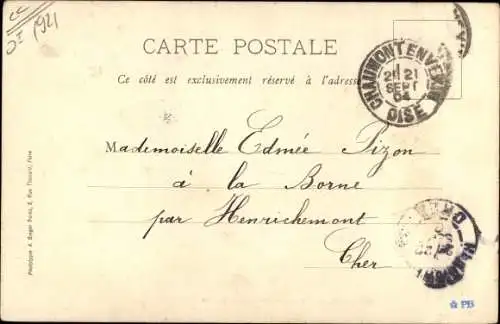 1921
CARTE POSTALE
Ce côté est exclusivement réservé à l'adresse
CHAUMONT EN VEXIN
21
SEPT
04
OISE
Mademoiselle Edmée Pizon
à la Borne
par Henrichemont
Cher
Phototypie A. Bergeret
PB